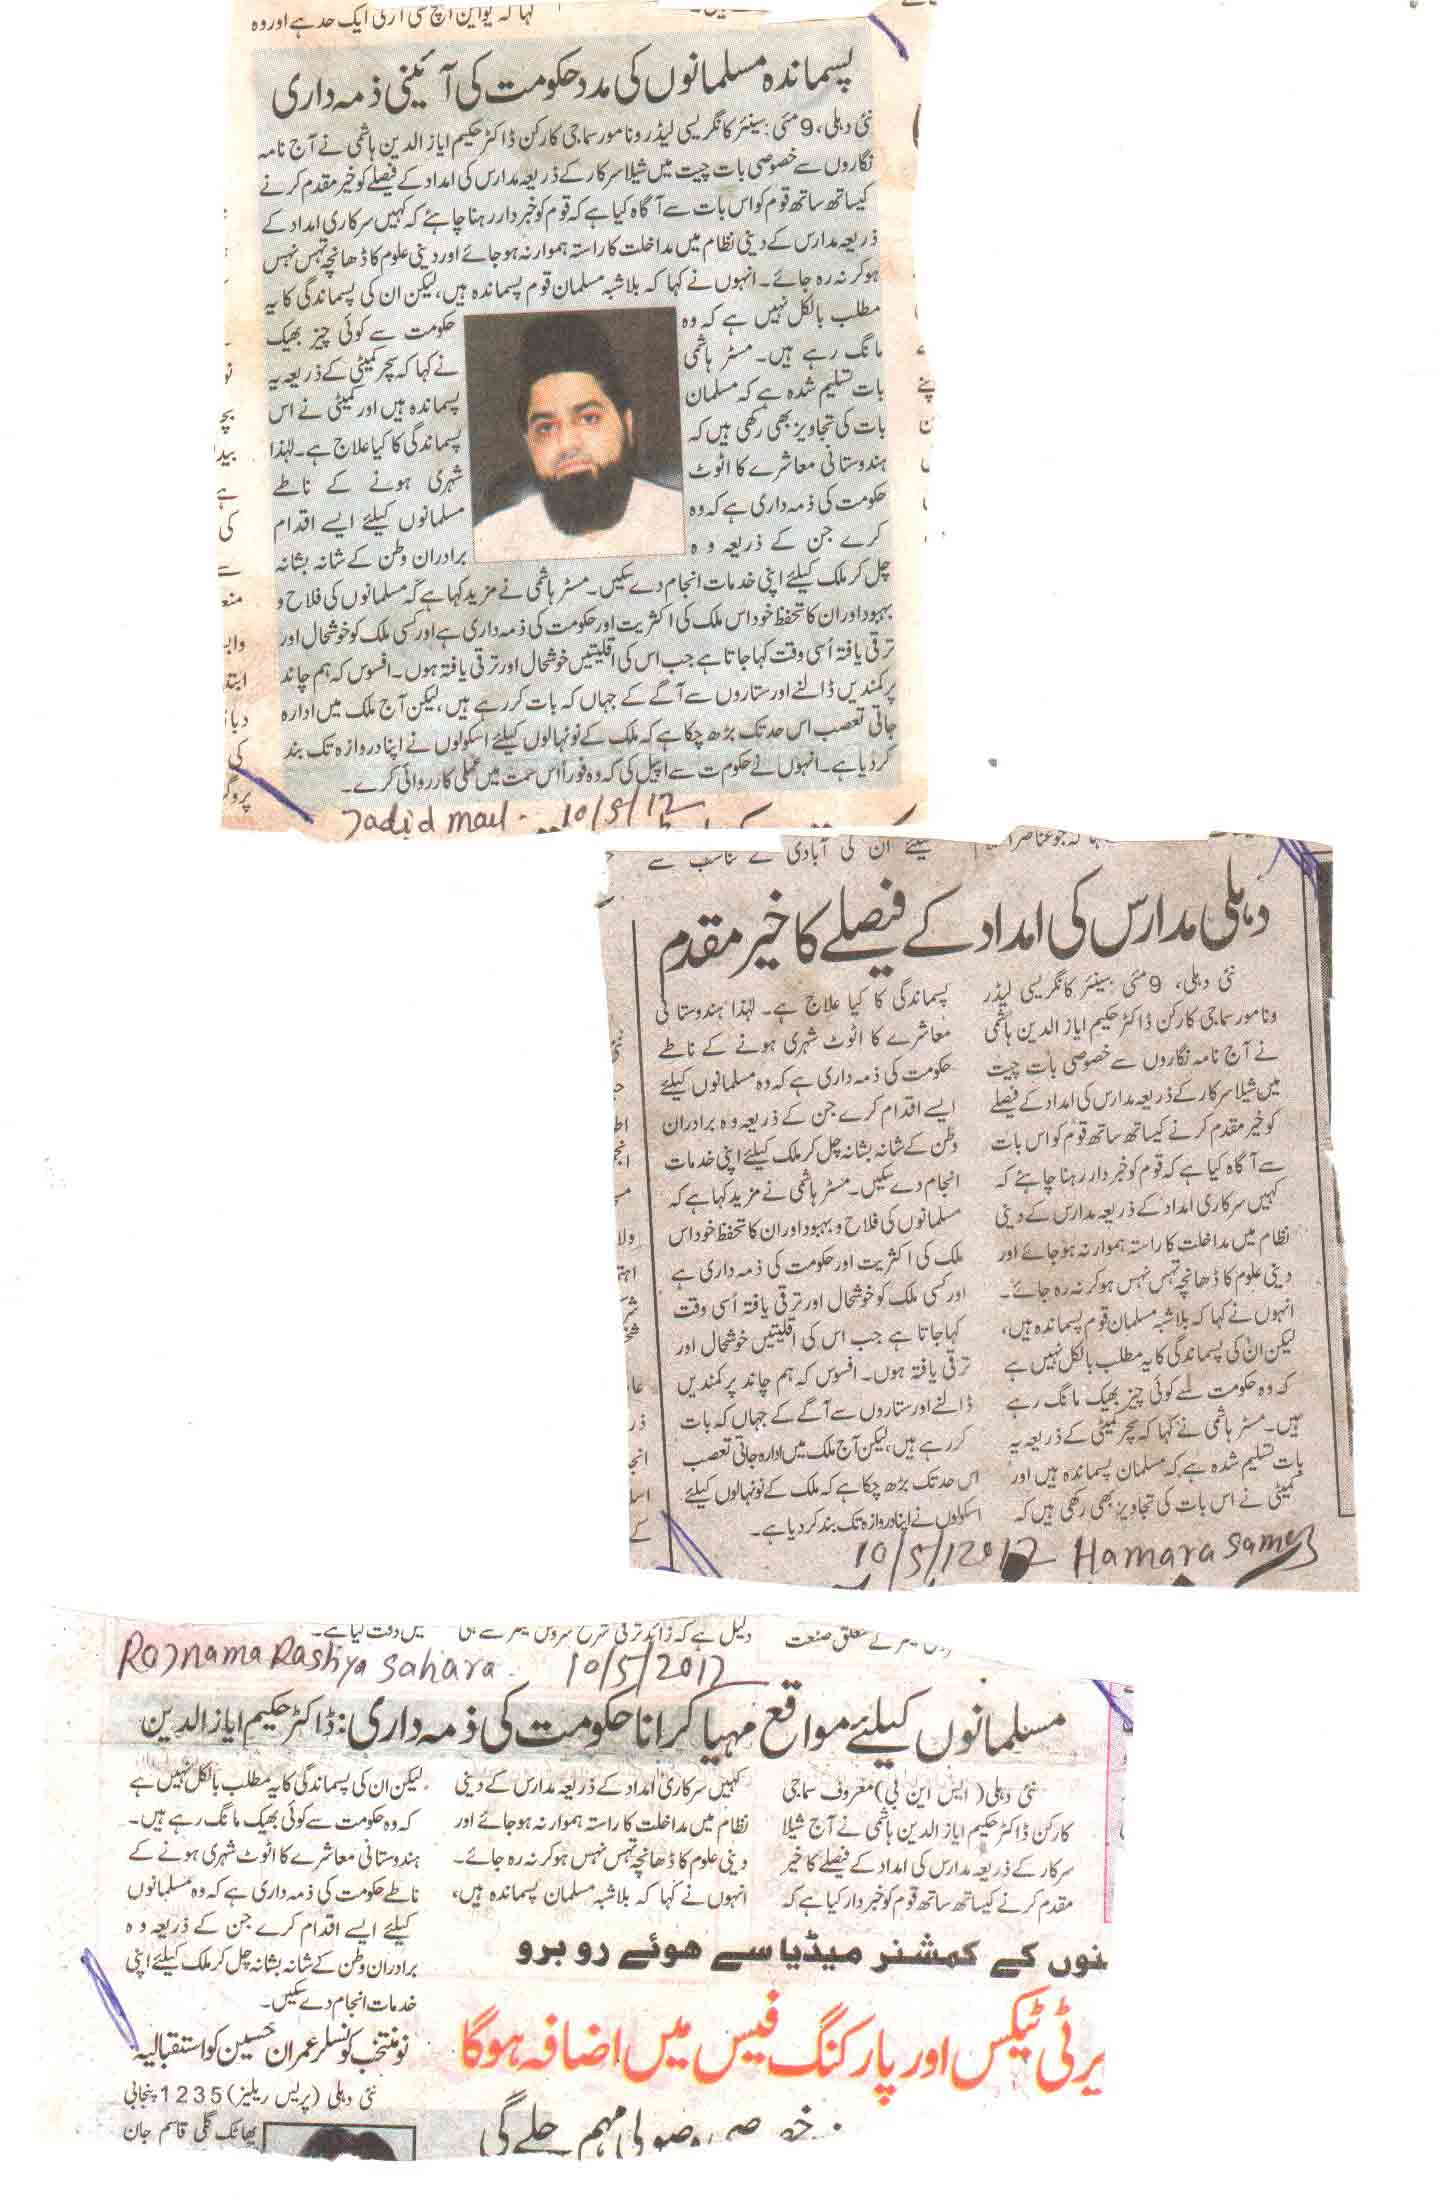 کہا کہ یو این ایچ سی آر کی ایک حد ہے اور وہ
پسماندہ مسلمانوں کی مدد حکومت کی آئینی ذمہ داری
نئی دہلی، 9 مئی: سینئر کانگریسی لیڈر و نامور سماجی کارکن ڈاکٹر حکیم ایاز الدین ہاشمی نے آج نامہ
نگاروں سے خصوصی بات چیت میں شیلا سرکار کے ذریعہ مدارس کی امداد کے فیصلے کو خیر مقدم کرنے
کیساتھ ساتھ قوم کو اس بات سے آگاہ کیا ہے کہ قوم کو خبردار رہنا چاہئے کہ کہیں سرکاری امداد کے
ذریعہ مدارس کے دینی نظام میں مداخلت کا راستہ ہموار نہ ہو جائے اور دینی علوم کا ڈھانچہ تہس نہس
ہو کر نہ رہ جائے۔ انہوں نے کہا کہ بلاشبہ مسلمان قوم پسماندہ ہیں، لیکن ان کی پسماندگی کا یہ
مطلب بالکل نہیں ہے کہ وہ حکومت سے کوئی چیز بھیک
مانگ رہے ہیں۔ مسٹر ہاشمی نے کہا کہ سچر کمیٹی کے ذریعہ یہ
بات تسلیم شدہ ہے کہ مسلمان پسماندہ ہیں اور کمیٹی نے اس
بات کی تجاویز بھی رکھی ہیں کہ پسماندگی کا کیا علاج ہے۔ لہٰذا
ہندوستانی معاشرے کا اٹوٹ شہری ہونے کے ناطے
حکومت کی ذمہ داری ہے کہ وہ مسلمانوں کیلئے ایسے اقدام
کرے جن کے ذریعہ وہ برادران وطن کے شانہ بشانہ
چل کر ملک کیلئے اپنی خدمات انجام دے سکیں۔ مسٹر ہاشمی نے مزید کہا ہے کہ مسلمانوں کی فلاح و
بہبود اور ان کا تحفظ خود اس ملک کی اکثریت اور حکومت کی ذمہ داری ہے اور کسی ملک کو خوشحال اور
ترقی یافتہ اُسی وقت کہا جاتا ہے جب اس کی اقلیتیں خوشحال اور ترقی یافتہ ہوں۔ افسوس کہ ہم چاند
پر کمندیں ڈالنے اور ستاروں سے آگے کے جہاں کہ بات کر رہے ہیں، لیکن آج ملک میں ادارہ
جاتی تعصب اس حد تک بڑھ چکا ہے کہ ملک کے نونہالوں کیلئے اسکولوں نے اپنا دروازہ تک بند
کر دیا ہے۔ انہوں نے حکومت سے اپیل کی کہ وہ فوراً اس سمت میں عملی کارروائی کرے۔
Jadid mail. 10/5/12
کیلئے ان کی آبادی کے تناسب سے
دہلی مدارس کی امداد کے فیصلے کا خیر مقدم
نئی دہلی، 9 مئی: سینئر کانگریسی لیڈر
و نامور سماجی کارکن ڈاکٹر حکیم ایاز الدین ہاشمی
نے آج نامہ نگاروں سے خصوصی بات چیت
میں شیلا سرکار کے ذریعہ مدارس کی امداد کے فیصلے
کو خیر مقدم کرنے کیساتھ ساتھ قوم کو اس بات
سے آگاہ کیا ہے کہ قوم کو خبردار رہنا چاہئے کہ
کہیں سرکاری امداد کے ذریعہ مدارس کے دینی
نظام میں مداخلت کا راستہ ہموار نہ ہو جائے اور
دینی علوم کا ڈھانچہ تہس نہس ہو کر نہ رہ جائے۔
انہوں نے کہا کہ بلاشبہ مسلمان قوم پسماندہ ہیں،
لیکن ان کی پسماندگی کا یہ مطلب بالکل نہیں ہے
کہ وہ حکومت سے کوئی چیز بھیک مانگ رہے
ہیں۔ مسٹر ہاشمی نے کہا کہ سچر کمیٹی کے ذریعہ یہ
بات تسلیم شدہ ہے کہ مسلمان پسماندہ ہیں اور
کمیٹی نے اس بات کی تجاویز بھی رکھی ہیں کہ
پسماندگی کا کیا علاج ہے۔ لہٰذا ہندوستانی
معاشرے کا اٹوٹ شہری ہونے کے ناطے
حکومت کی ذمہ داری ہے کہ وہ مسلمانوں کیلئے
ایسے اقدام کرے جن کے ذریعہ وہ برادران
وطن کے شانہ بشانہ چل کر ملک کیلئے اپنی خدمات
انجام دے سکیں۔ مسٹر ہاشمی نے مزید کہا ہے کہ
مسلمانوں کی فلاح و بہبود اور ان کا تحفظ خود اس
ملک کی اکثریت اور حکومت کی ذمہ داری ہے
اور کسی ملک کو خوشحال اور ترقی یافتہ اُسی وقت
کہا جاتا ہے جب اس کی اقلیتیں خوشحال اور
ترقی یافتہ ہوں۔ افسوس کہ ہم چاند پر کمندیں
ڈالنے اور ستاروں سے آگے کے جہاں کہ بات
کر رہے ہیں، لیکن آج ملک میں ادارہ جاتی تعصب
اس حد تک بڑھ چکا ہے کہ ملک کے نونہالوں کیلئے
اسکولوں نے اپنا دروازہ تک بند کر دیا ہے۔
10/5/2012 Hamara Samaj
Roznama Rashtya Sahara. 10/5/2012
مسلمانوں کیلئے مواقع مہیا کرانا حکومت کی ذمہ داری: ڈاکٹر حکیم ایاز الدین
نئی دہلی (ایس این بی) معروف سماجی
کارکن ڈاکٹر حکیم ایاز الدین ہاشمی نے آج شیلا
سرکار کے ذریعہ مدارس کی امداد کے فیصلے کا خیر
مقدم کرنے کیساتھ ساتھ قوم کو خبردار کیا ہے کہ
کہیں سرکاری امداد کے ذریعہ مدارس کے دینی
نظام میں مداخلت کا راستہ ہموار نہ ہو جائے اور
دینی علوم کا ڈھانچہ تہس نہس ہو کر نہ رہ جائے۔
انہوں نے کہا کہ بلاشبہ مسلمان پسماندہ ہیں،
لیکن ان کی پسماندگی کا یہ مطلب بالکل نہیں ہے
کہ وہ حکومت سے کوئی بھیک مانگ رہے ہیں۔
ہندوستانی معاشرے کا اٹوٹ شہری ہونے کے
ناطے حکومت کی ذمہ داری ہے کہ وہ مسلمانوں
کیلئے ایسے اقدام کرے جن کے ذریعہ وہ
برادران وطن کے شانہ بشانہ چل کر ملک کیلئے اپنی
خدمات انجام دے سکیں۔
نوں کے کمشنر میڈیا سے ہوئے روبرو
رٹی ٹیکس اور پارکنگ فیس میں اضافہ ہوگا
وصولی مہم چلے گی
نو منتخب کونسلر عمران حسین کو استقبالیہ
نئی دہلی (پریس ریلیز) 1235 پنجابی
پھاٹک گلی قاسم جان